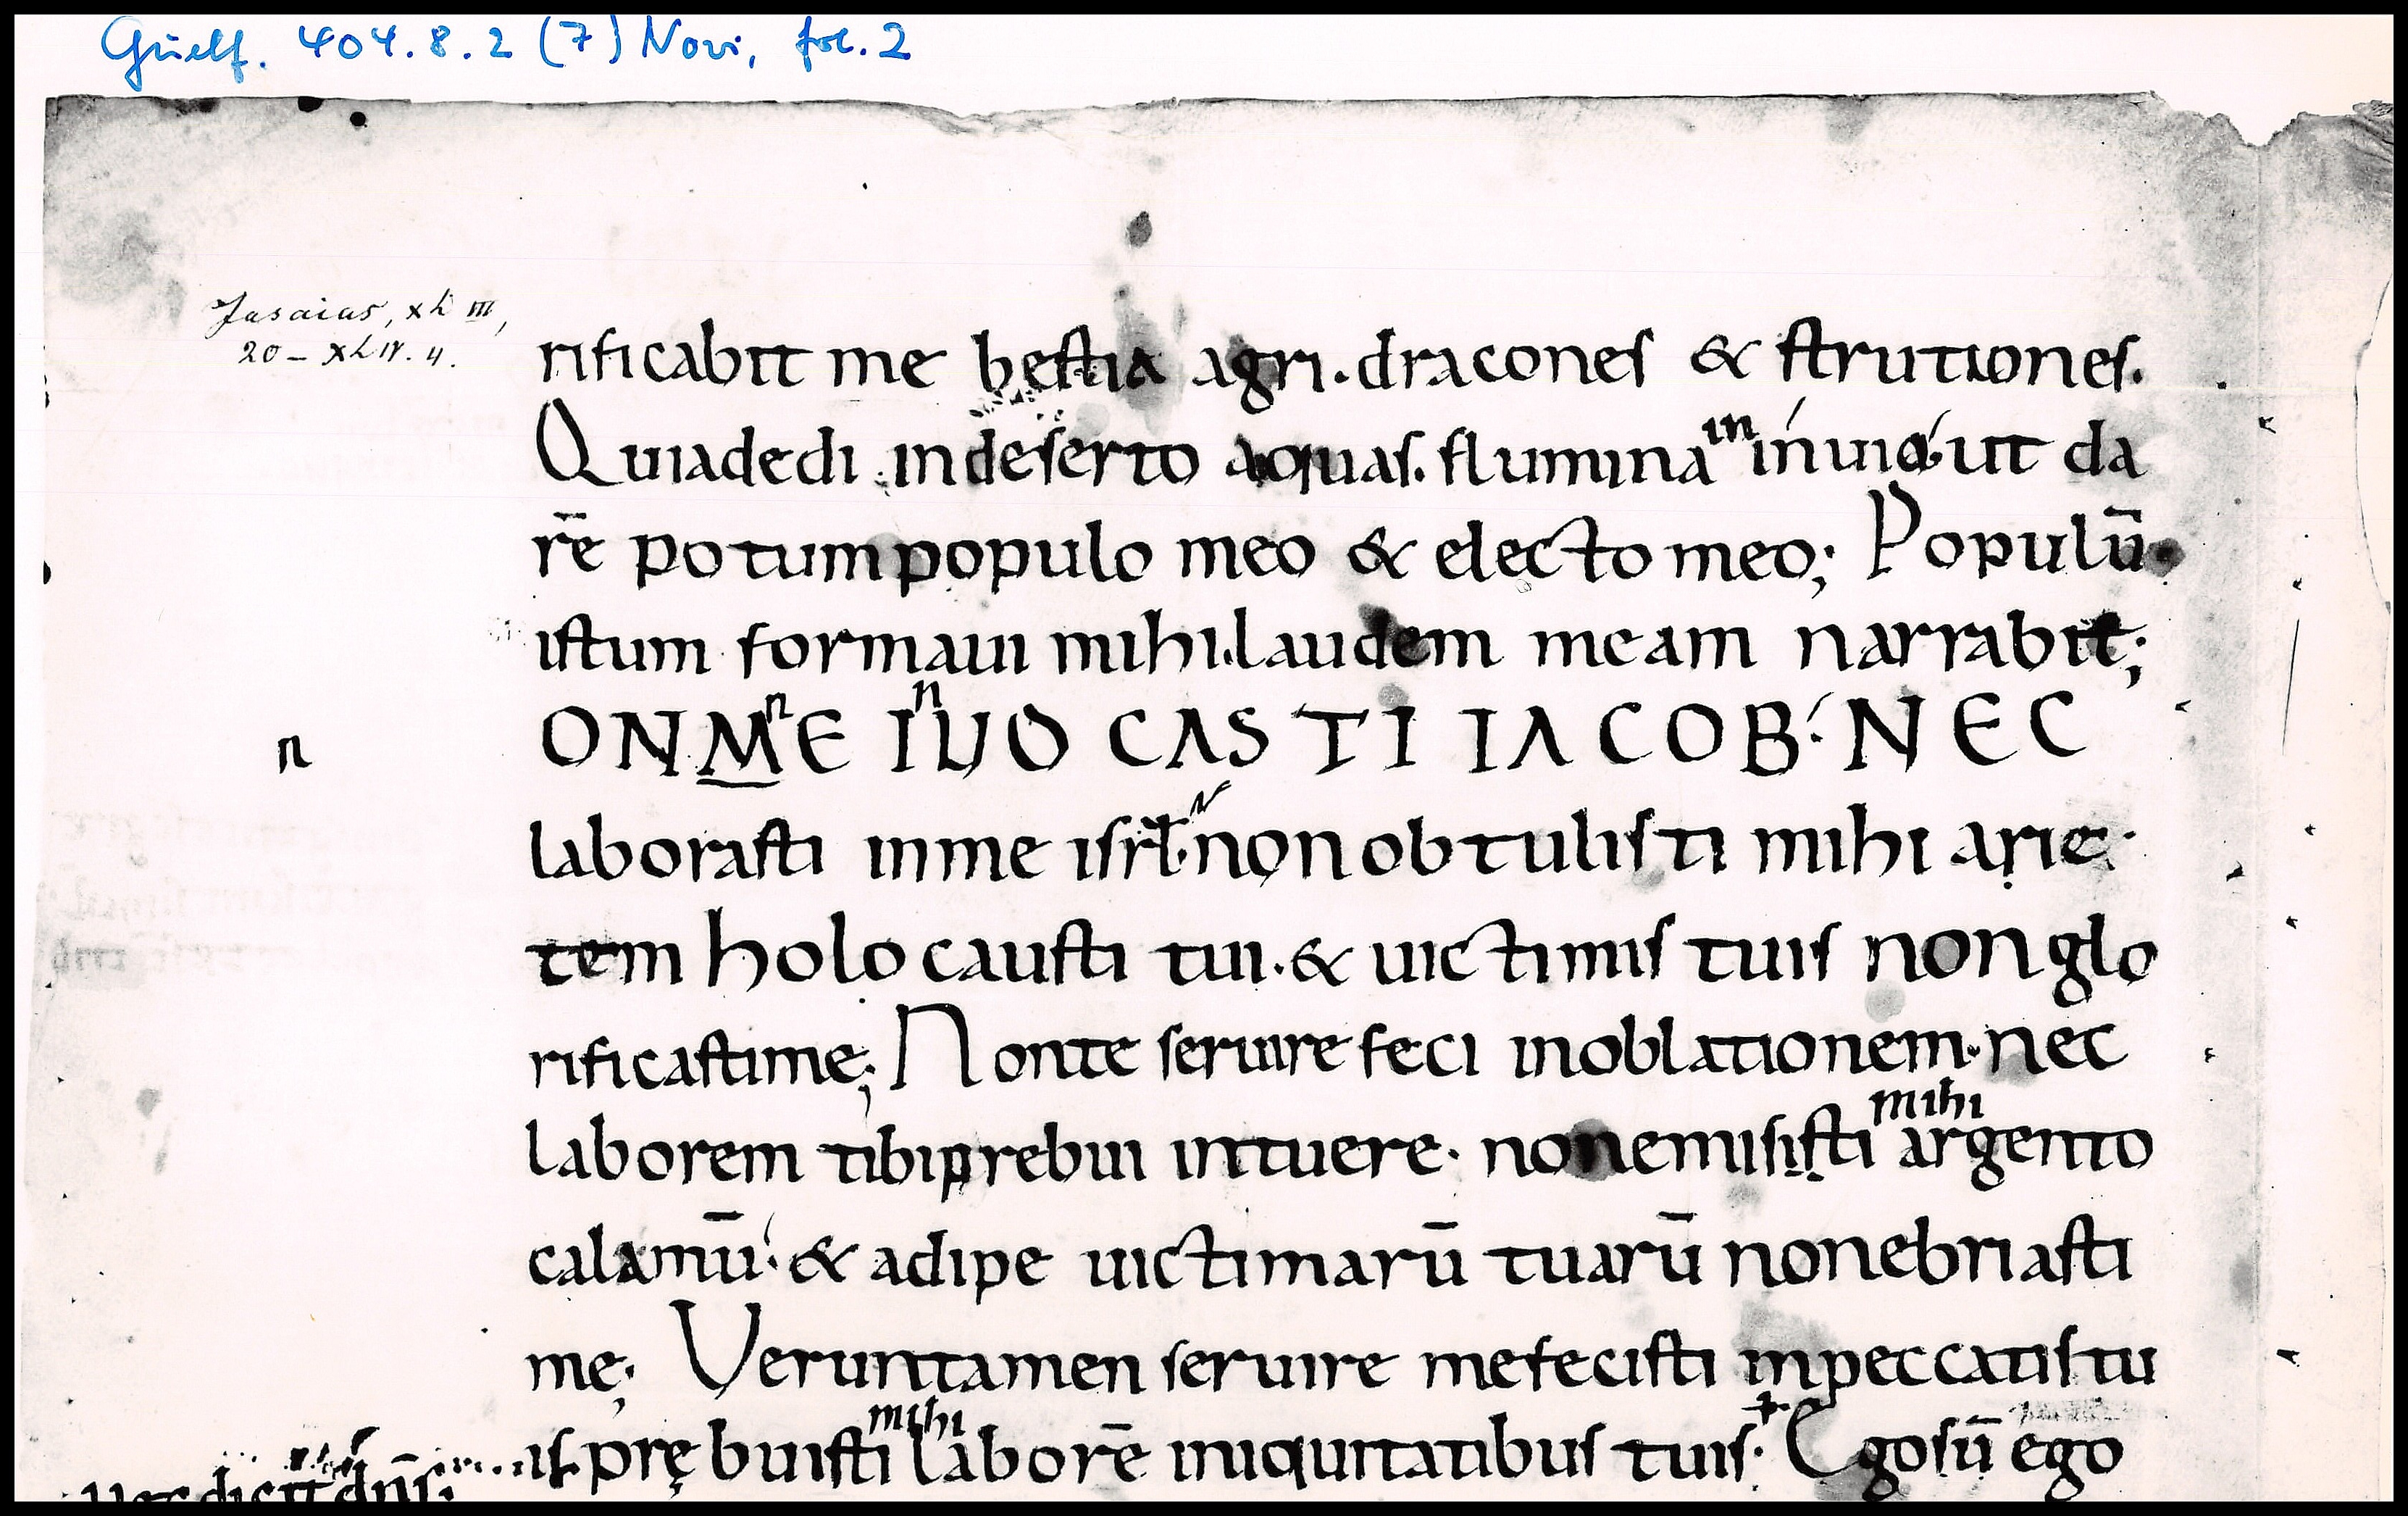 Guelf. 404.8.2 (7) Novi, fol. 2
Jasaias, XLIII,
20 – XLIV. 4.
rificabit me bestia agri. dracones & strutiones.
Quiadedi indeserto aquas. flumina in inuio. ut da
rē potum populo meo & electo meo; Populū
istum formaui mihi. laudem meam narrabit;
n
n n
ONME IUO CASTI IACOB. NEC
laborasti inme isrł. non obtulisti mihi arie
tem holocausti tui. & uictimis tuis non glo
rificastime; Nonte seruire feci inoblationem. nec
mihi
laborem tibi prebui intuere. nonemisisti argento
calamū. & adipe uictimarū tuarū nonebriasti
me; Veruntamen seruire mefecisti inpeccatis tu
mihi
is. prębuisti laborē iniquitatibus tuis. Egosū ego
dicit dn̄s